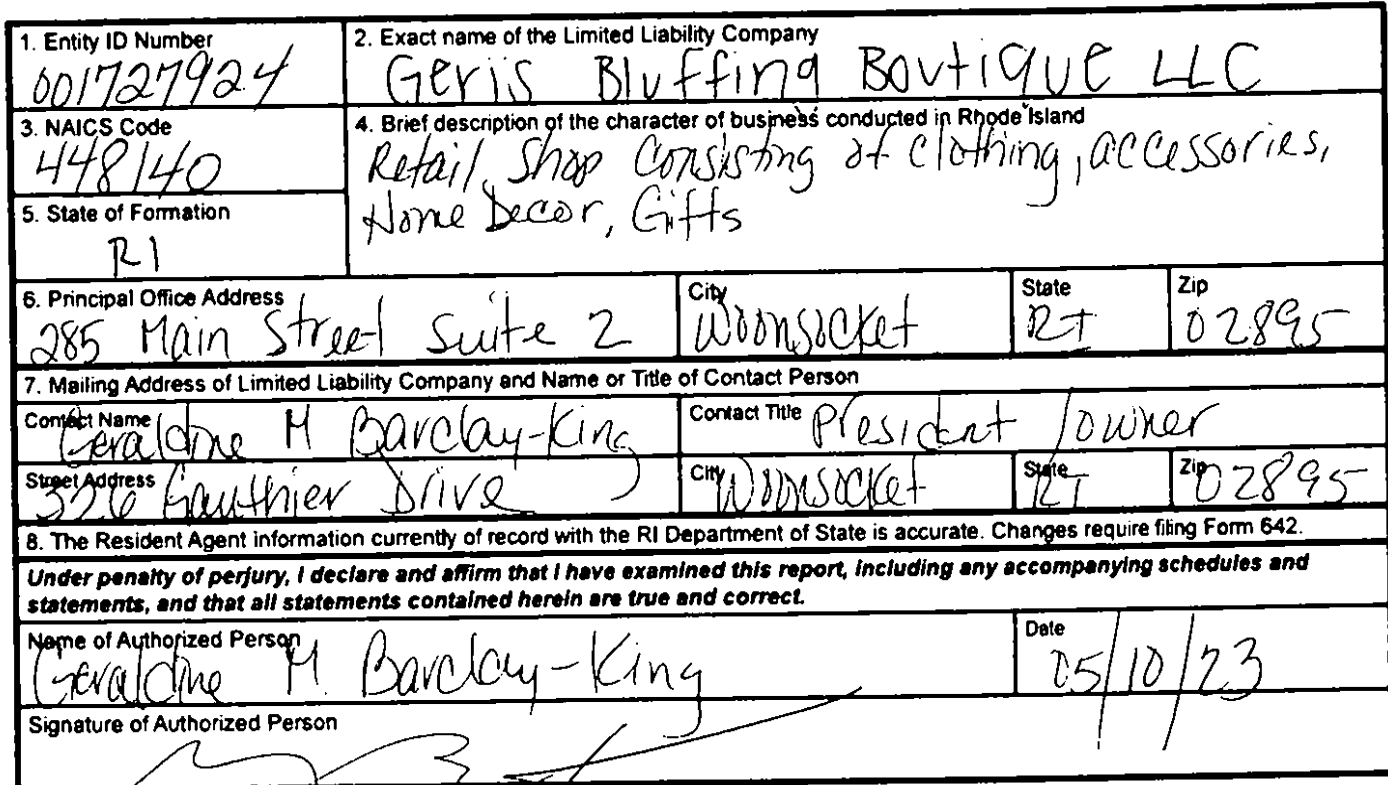 1. Entity ID Number
001727924
2. Exact name of the Limited Liability Company
Geris Bluffing Boutique LLC
3. NAICS Code
448140
4. Brief description of the character of business conducted in Rhode Island
Retail Shop Consisting of Clothing, accessories,
Home Decor, Gifts
5. State of Formation
RI
6. Principal Office Address
285 Main Street Suite 2
City
Woonsocket
State
RI
Zip
02895
7. Mailing Address of Limited Liability Company and Name or Title of Contact Person
Contact Name
Geraldine M Barclay-King
Contact Title
President / owner
Street Address
326 Gauthier Drive
City
Woonsocket
State
RI
Zip
02895
8. The Resident Agent information currently of record with the RI Department of State is accurate. Changes require filing Form 642.
Under penalty of perjury, I declare and affirm that I have examined this report, including any accompanying schedules and
statements, and that all statements contained herein are true and correct.
Name of Authorized Person
Geraldine M. Barclay-King
Date
05/10/23
Signature of Authorized Person